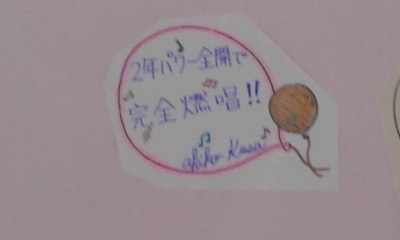 2年パワー全開で
完全燃唱!!
akiko Kasai